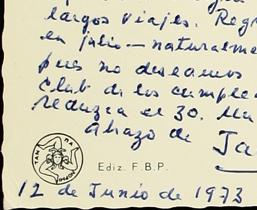 largos viajes. Reg
en julio—naturalme
pues no deseamos
Club de los cumple
reduzca el 30. Un
abrazo de Ja
Ediz. F.B.P.
12 de Junio de 1973